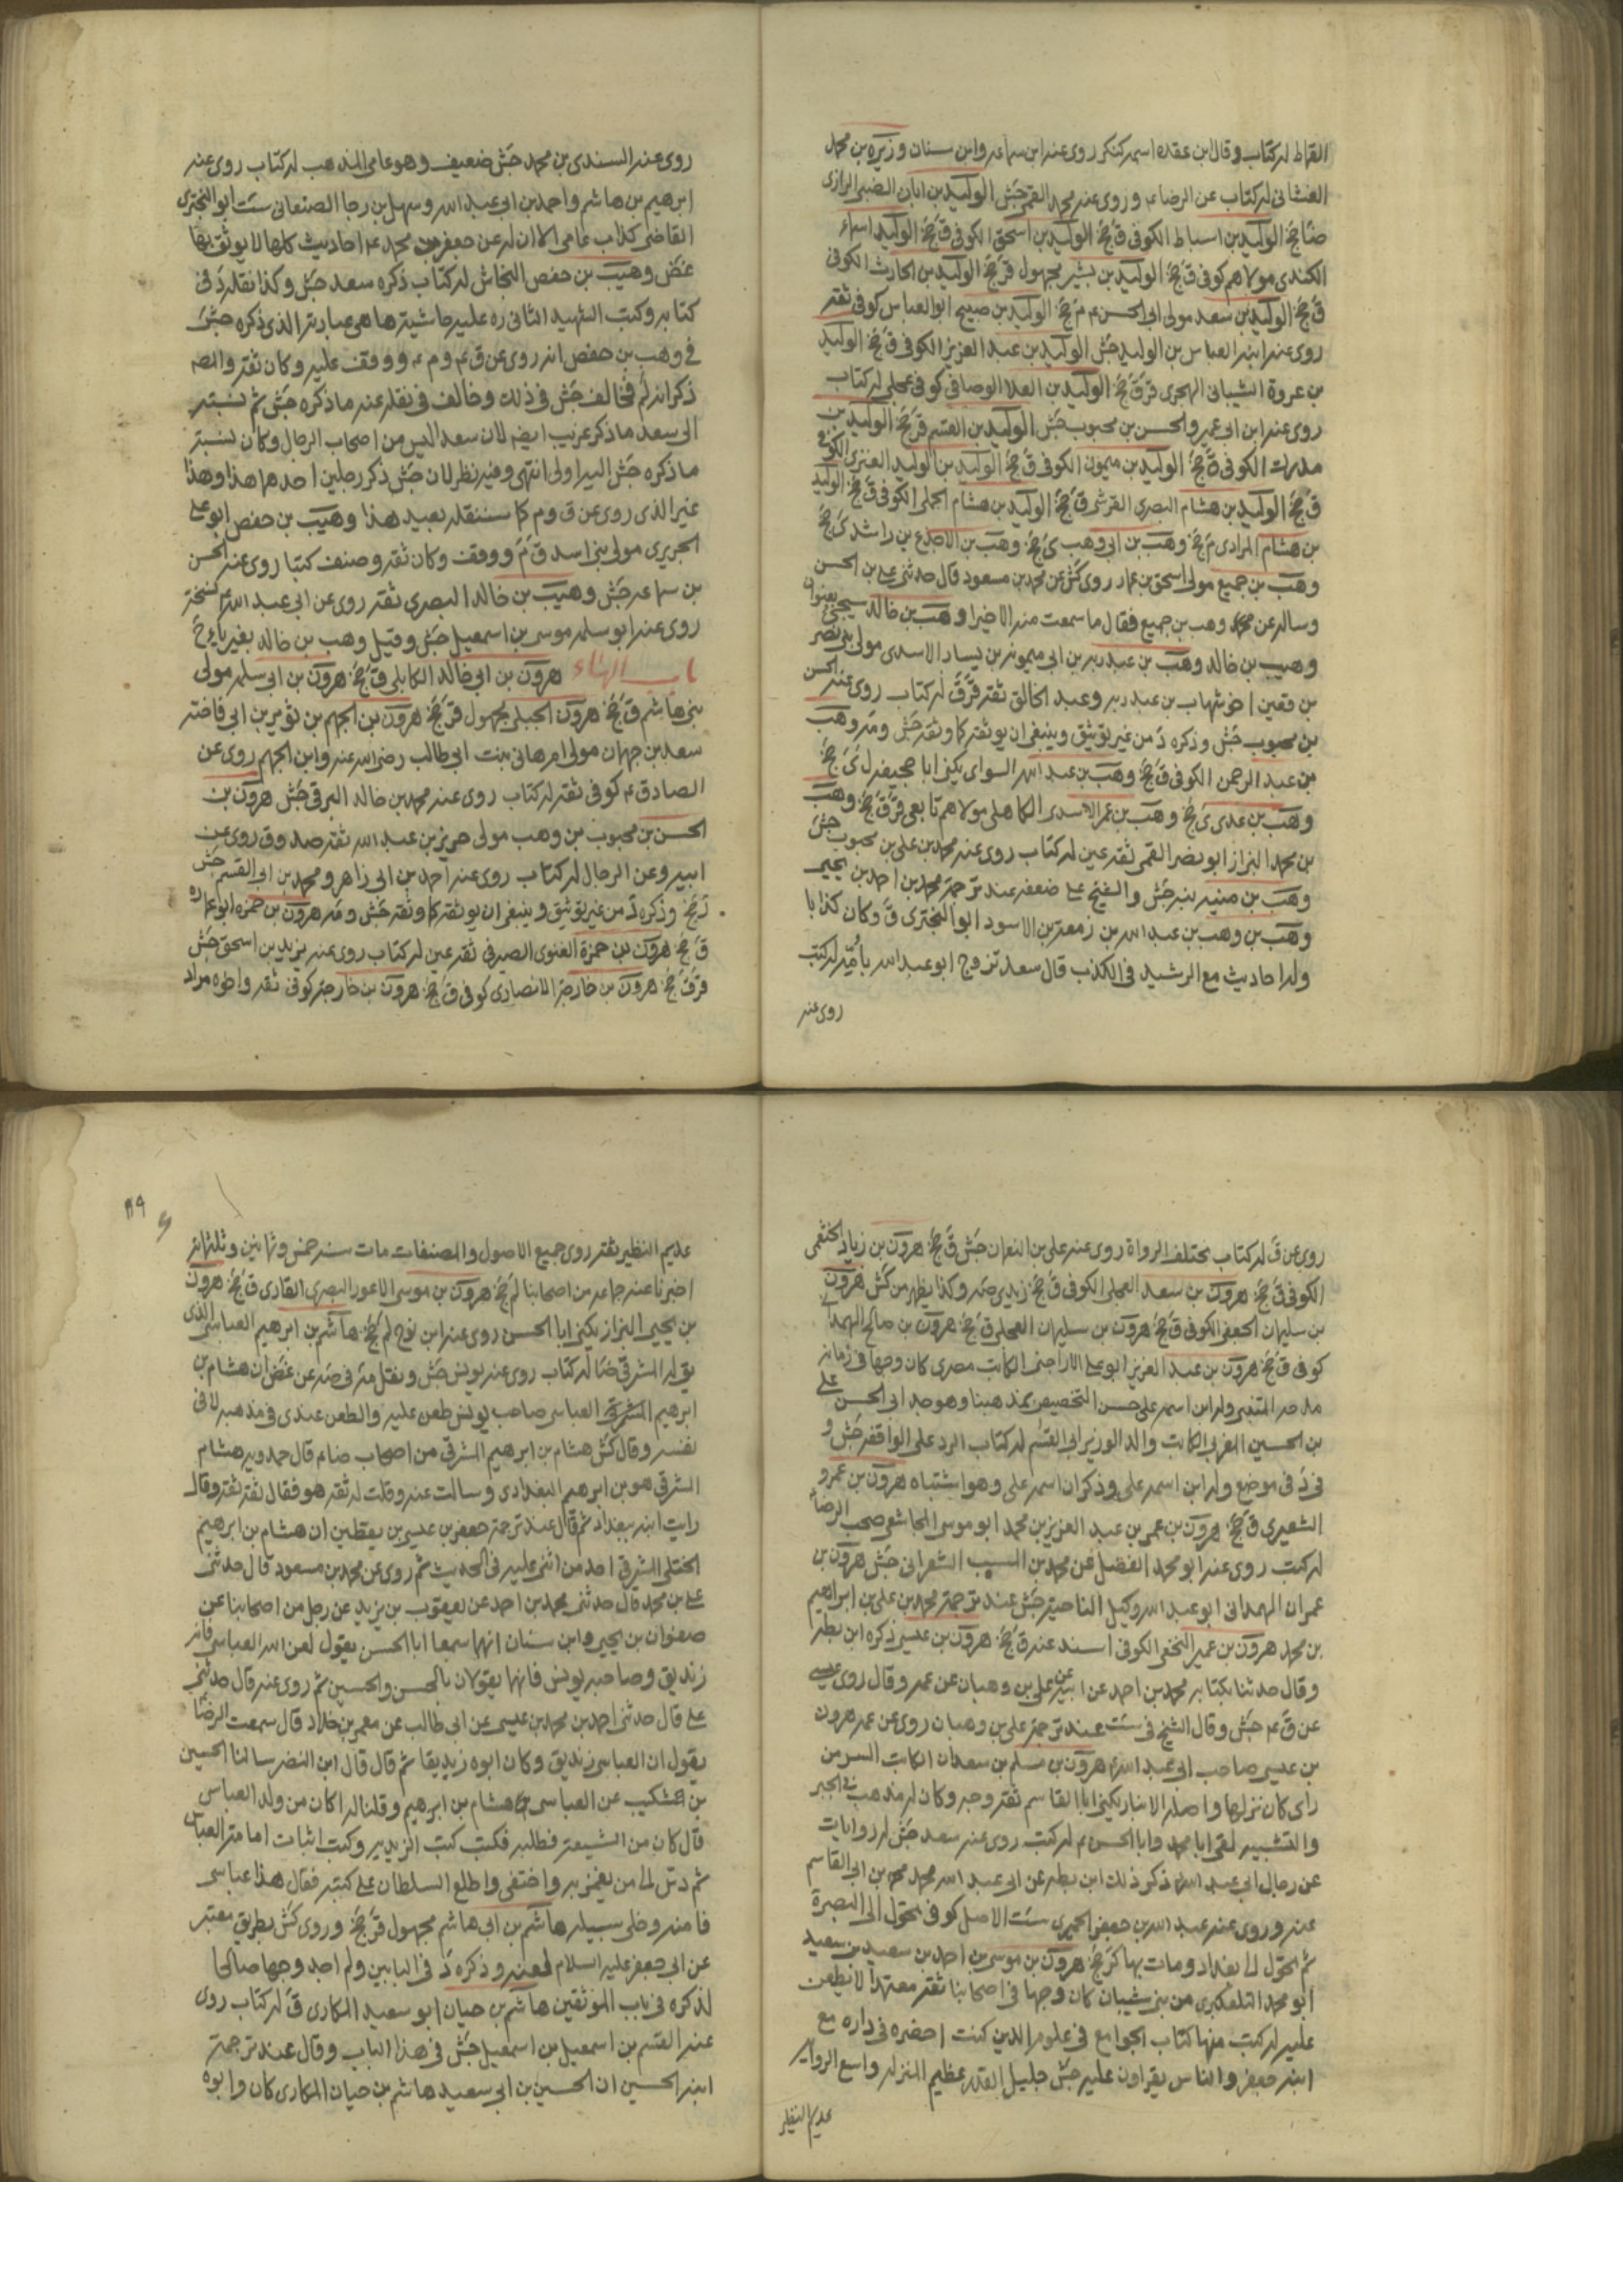 القماط له كتاب وقال ابن عقده اسمه كنكر روى عنه ابن سماعه وابن سنان وزيره بن محمد
الغشانى له كتاب عن الرضا ع وروى عنه محمد القمى جش الوليد بن ابان الضبى الرازى
ضا جخ الوليد بن اسباط الكوفى ق جخ الوليد بن اسحق الكوفى ق جخ الوليد اسماء
الكندى مولاهم كوفى ق جخ الوليد بن بشير مجهول قر جخ الوليد بن الحارث الكوفى
ق جخ الوليد بن سعد مولى ابى الحسن ع م جخ الوليد بن صبيح ابو العباس كوفى ثقه
روى عنه ابنه العباس بن الوليد جش الوليد بن عبد العزيز الكوفى ق جخ الوليد
بن عروة الشيبانى الهجرى قر ق جخ الوليد بن العلا الوصافى كوفى عجلى له كتاب
روى عنه ابن ابى عمير والحسن بن محبوب جش الوليد بن القسم قر جخ الوليد بن
مدرك الكوفى ق جخ الوليد بن ميمون الكوفى ق جخ الوليد بن الوليد العنزى الكوفى
ق جخ الوليد بن هشام البصرى القرشى ق جخ الوليد بن هشام الجملى الكوفى ق جخ الوليد
بن هشام المرادى م جخ وهب بن ابى وهب ى جخ وهب بن الاجدع بن راشد ى جخ
وهب بن جميع مولى اسحق بن عمار روى كش عن محمد بن مسعود قال حدثنى على بن الحسن
وساله عن وهب بن جميع فقال ما سمعت منه الا خيرا وهب بن خالد سيجئ بعنوان
وهيب بن خالد وهب بن عبد ربه بن ابى ميمونه بن يسار الاسدى مولى بنى نصر
بن قعين اخو شهاب بن عبد ربه وعبد الخالق ثقه قر ق له كتاب روى عنه الحسن
بن محبوب جش وذكره د من غير توثيق وينبغى ان يوثقه كما وثقه جش ومه وهب
بن عبد الرحمن الكوفى ق جخ وهب بن عبد الله السواى يكنى ابا جحيفه ل ى جخ
وهب بن عدى ى جخ وهب بن عمر الاسدى الكاهلى مولاهم تابعى قر ق جخ وهب
بن محمد البزاز ابو نصر القمى ثقه عين له كتاب روى عنه محمد بن على بن محبوب جش
وهب بن منبه نبه جش والشيخ على ضعفه عند ترجمة محمد بن احمد بن يحيى
وهب بن وهب بن عبد الله بن زمعة بن الاسود ابو البخترى ق وكان كذابا
وله احاديث مع الرشيد فى الكذب قال سعد تزوج ابو عبد الله بأمّه له كتب
روى عنه
روى عنه السندى بن محمد جش ضعيف وهو عامى المذهب له كتاب روى عنه
ابرهيم بن هاشم واحمد بن ابى عبد الله وسهل بن رجا الصنعانى ست ابو البخترى
القاضى كذاب عامى الا ان له عن جعفر بن محمد ع احاديث كلها لا يوثق بها
غض وهيب بن حفص النخاس له كتاب ذكره سعد جش وكذا نقله د فى
كتابه وكتب الشهيد الثانى ره عليه حاشيتها هى عبارته الذى ذكره جش
فى وهب بن حفص انه روى عن ق ع وم ع ووقف عليه وكان ثقه والمصـ
ذكر انه لم فخالف جش فى ذلك وخالف فى نقله عنه ما ذكره جش ثم نسبته
الى سعد ما ذكر غريب ايضه لان سعد ليس من اصحاب الرجال وكان نسبة
ما ذكره جش اليه اولى انتهى وفيه نظر لان جش ذكر رجلين احدهما هذا وهذا
غير الذى روى عن ق وم كما سننقله بعيد هذا وهيب بن حفص ابو على
الجريرى مولى بنى اسد ق م ووقف وكان ثقه وصنف كتبا روى عنه الحسن
بن سماعه جش وهيب بن خالد البصرى ثقه روى عن ابى عبد الله نسخة
روى عنه ابو سلمه موسى بن اسمعيل جش وقيل وهب بن خالد بغير ياء ج
باب الهاء هرون بن ابى خالد الكابلى ق جخ هرون بن ابى سلمه مولى
بنى هاشم ق جخ هرون الجبلى مجهول قر جخ هرون بن الجهم بن ثوير بن ابى فاخته
سعد بن جهمان مولى ام هانى بنت ابى طالب رضى الله عنه وابن الجهم روى عن
الصادق ع كوفى ثقه له كتاب روى عنه محمد بن خالد البرقى جش هرون بن
الحسن بن محبوب بن وهب مولى جرير بن عبد الله ثقه صدوق روى عن
ابيه وعن الرجال له كتاب روى عنه احمد بن ابى زاهر ومحمد بن ابى القسم جش
د جخ وذكره د من غير توثيق وينبغى ان يوثقه كما وثقه جش ومه هرون بن حمزه ابو عماره
ق جخ هرون بن حمزة الغنوى الصيرفى ثقه عين له كتاب روى عنه يزيد بن اسحق جش
قر ق جخ هرون بن خارجة الانصارى كوفى ق جخ هرون بن خارجة كوفى ثقه واخوه مراد
روى عن ق له كتاب يختلف الرواة روى عنه على بن النعمان جش ق جخ هرون بن زياد الخثعمى
الكوفى ق جخ هرون بن سعد العجلى الكوفى ق جخ زيدى صه وكذا يظهر من كش هرون
بن سليمان الجعفى الكوفى ق جخ هرون بن سليمان العجلى ق جخ هرون بن صالح الهمدانى
كوفى ق جخ هرون بن عبد العزيز ابو على الاراجنى الكاتب مصرى كان وجها فى زمانه
مدحه المتنبى وله ابن اسمه على حسن التخصيص بمذهبنا وهو جد ابى الحسن على
بن الحسين المغربى الكاتب والد الوزير ابى القسم له كتاب الرد على الواقفه جش و
فى د فى موضع وله ابن اسمه على وذكر ان اسمه على وهو اشتباه هرون بن عمرو
الشعيرى ق جخ هرون بن عمر بن عبد العزيز بن محمد ابو موسى المجاشعى صحب الرضا
له كتب روى عنه ابو محمد الفضل عن محمد بن المسيب الشعرانى جش هرون بن
عمران الهمدانى ابو عبد الله وكيل الناحية جش عند ترجمة محمد بن على بن ابراهيم
بن محمد هرون بن عمير النخعى الكوفى اسند عنه ق جخ هرون بن عيسى ذكره ابن بطه
وقال حدثنا بكتابه محمد بن احمد عن ابيه عن على بن وهبان عن عمه وقال روى عيسى
عن ق ع جش وقال الشيخ فى ست عند ترجمة على بن وهبان روى عن عمه هرون
بن عيسى صاحب ابى عبد الله هرون بن مسلم بن سعدان الكاتب السر من
راى كان نزلها واصله الانبار يكنى ابا القاسم ثقه وجه وكان له مذهب فى الجبر
والتشبيه لقى ابا محمد وابا الحسن ع له كتب روى عنه سعد جش له روايات
عن رجال ابى عبد الله ذكر ذلك ابن بطه عن ابى عبد الله محمد بن ابى القاسم
عنه وروى عنه عبد الله بن جعفر الحميرى ست الاصل كوفى تحول الى البصرة
ثم تحول الى بغداد ومات بها كر جخ هرون بن موسى بن احمد بن سعيد بن سعيد
ابو محمد التلعكبرى من بنى شيبان كان وجها فى اصحابنا ثقه معتمدا لا يطعن
عليه له كتب منها كتاب الجوامع فى علوم الدين كنت احضره فى داره مع
ابنه جعفر والناس يقراون عليه جش جليل القدر عظيم المنزله واسع الروايه
عديم النظير
٨٩
عديم النظير ثقه روى جميع الاصول والمصنفات مات سنه خمس وثمانين وثلثمائه
اخبرنا عنه جماعه من اصحابنا لم جخ هرون بن موسى الاعور البصرى القارى ق جخ هرون
بن يحيى البزاز يكنى ابا الحسن روى عنه ابن نوح لم جخ هاشم بن ابرهيم العباسى الذى
يق له المشرقى ضا له كتاب روى عنه يونس جش ونقل مه فى صه عن غض ان هشام بن
ابرهيم المشرقى العباسى صاحب يونس طعن عليه والطعن عندى فى مذهبه لا فى
نفسه وقال كش هشام بن ابرهيم المشرقى من اصحاب ضا ع قال حمدويه هشام
المشرقى هو بن ابرهيم البغدادى وسالت عنه وقلت له ثقه هو فقال ثقه ثقه وقال
رايت ابنه ببغداد ثم قال عند ترجمة جعفر بن عيسى بن يقطين ان هشام بن ابرهيم
الختلى المشرقى احد من اثنى عليه فى الحديث ثم روى عن محمد بن مسعود قال حدثنى
على بن محمد قال حدثنى محمد بن احمد عن يعقوب بن يزيد عن رجل من اصحابنا عن
صفوان بن يحيى وابن سنان انهما سمعا ابا الحسن يقول لعن الله العباسى فانه
زنديق وصاحبه يونس فانهما يقولان بالحسن والحسين ثم روى عنه قال حدثنى
على قال حدثنى احمد بن محمد بن عيسى عن ابى طالب عن معمر بن خلاد قال سمعت الرضا
يقول ان العباسى زنديق وكان ابوه زنديقا ثم قال قال ابن النضر سالنا الحسين
بن اشكيب عن العباسى هشام بن ابرهيم وقلنا له اكان من ولد العباس
قال كان من الشيعة فطلبه فكتب كتب الزيديه وكتب اثبات امامة العباس
ثم دس الى من يغمز به واختفى واطلع السلطان على كتبه فقال هذا عباسى
فامنه وخلى سبيله هاشم بن ابى هاشم مجهول قر جخ وروى كش بطريق معتبر
عن ابى جعفر عليه السلام لعنه وذكره د فى البابين ولم اجد وجها صالحا
لذكره فى باب الموثقين هاشم بن حيان ابو سعيد المكارى ق له كتاب روى
عنه القسم بن اسمعيل بن اسمعيل جش فى هذا الباب وقال عند ترجمة
ابنه الحسين ان الحسين بن ابى سعيد هاشم بن حيان المكارى كان وابوه